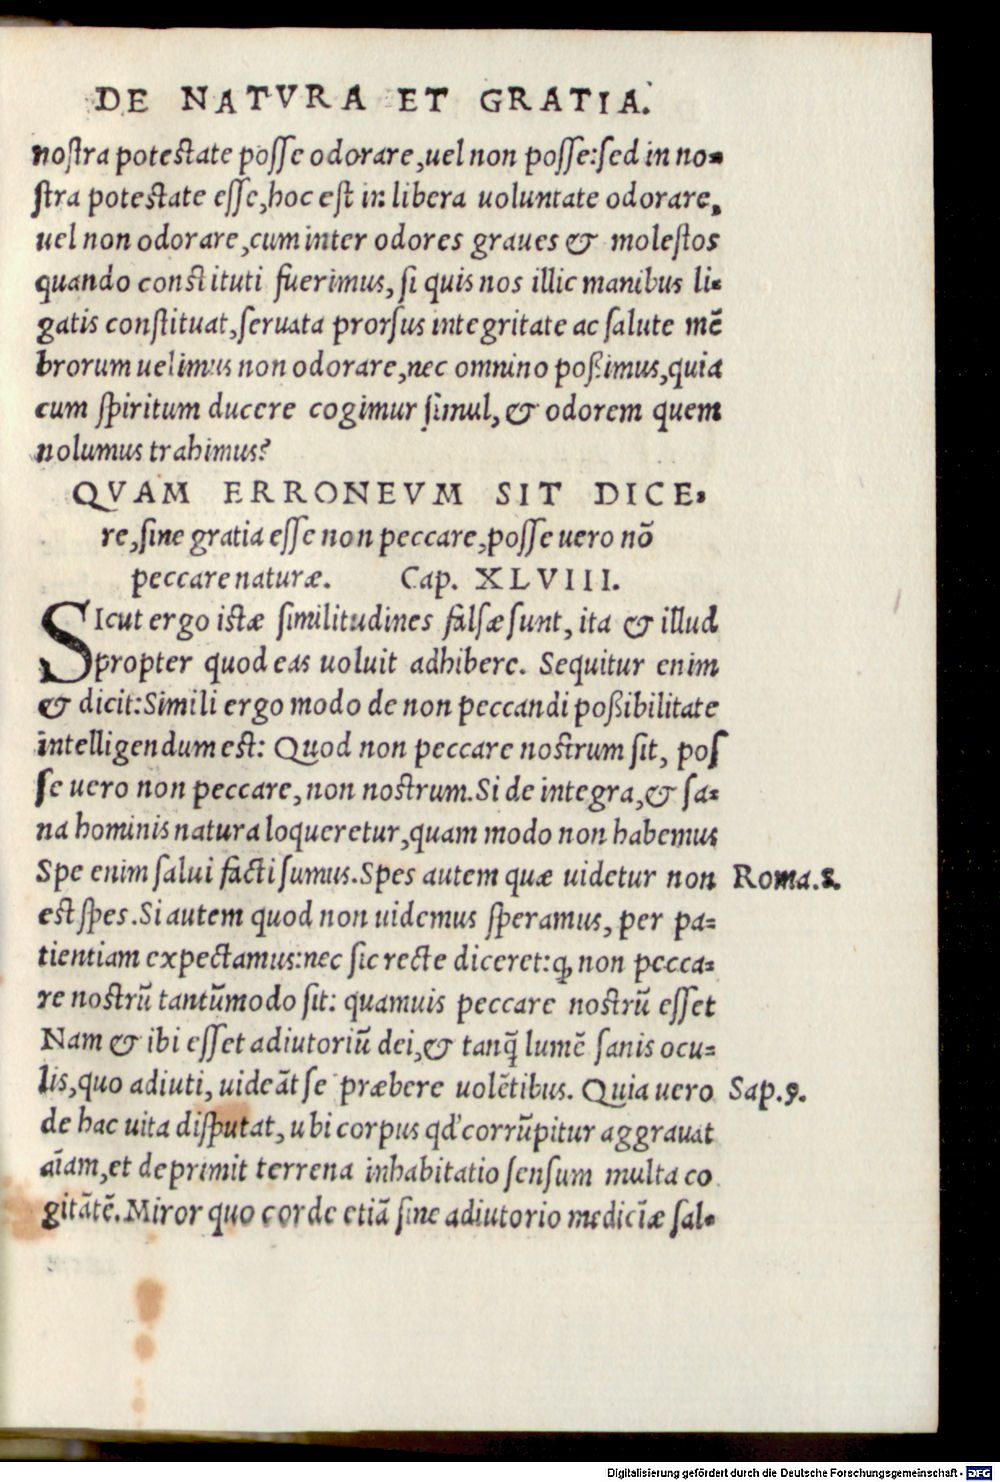 DE NATVRA ET GRATIA.
nostra potestate posse odorare, uel non posse: sed in no=
stra potestate esse, hoc est in libera uoluntate odorare,
uel non odorare, cum inter odores graues & molestos
quando constituti fuerimus, si quis nos illic manibus li=
gatis constituat, seruata prorsus integritate ac salute mẽ
brorum uelimus non odorare, nec omnino poßimus, quia
cum spiritum ducere cogimur simul, & odorem quem
nolumus trahimus?
QVAM ERRONEVM SIT DICE=
re, sine gratia esse non peccare, posse uero nõ
peccare naturæ. Cap. XLVIII.
SIcut ergo istæ similitudines falsæ sunt, ita & illud
propter quod eas uoluit adhibere. Sequitur enim
& dicit: Simili ergo modo de non peccandi poßibilitate
intelligendum est: Quod non peccare nostrum sit, pos
se uero non peccare, non nostrum. Si de integra, & sa=
na hominis natura loqueretur, quam modo non habemus
Spe enim salui facti sumus. Spes autem quæ uidetur non Roma.8.
est spes. Si autem quod non uidemus speramus, per pa=
tientiam expectamus: nec sic recte diceret: ꝙ non pecca=
re nostrũ tantũmodo sit: quamuis peccare nostrũ esset
Nam & ibi esset adiutoriũ dei, & tanq̃ lumẽ sanis ocu=
lis, quo adiuti, uideãt se præbere uolẽtibus. Quia uero Sap.9.
de hac uita disputat, ubi corpus qđ corrũpitur aggrauat
aĩam, et deprimit terrena inhabitatio sensum multa co
gitãtẽ. Miror quo corde etiã sine adiutorio mediciæ sal=
Digitalisierung gefördert durch die Deutsche Forschungsgemeinschaft - DFG